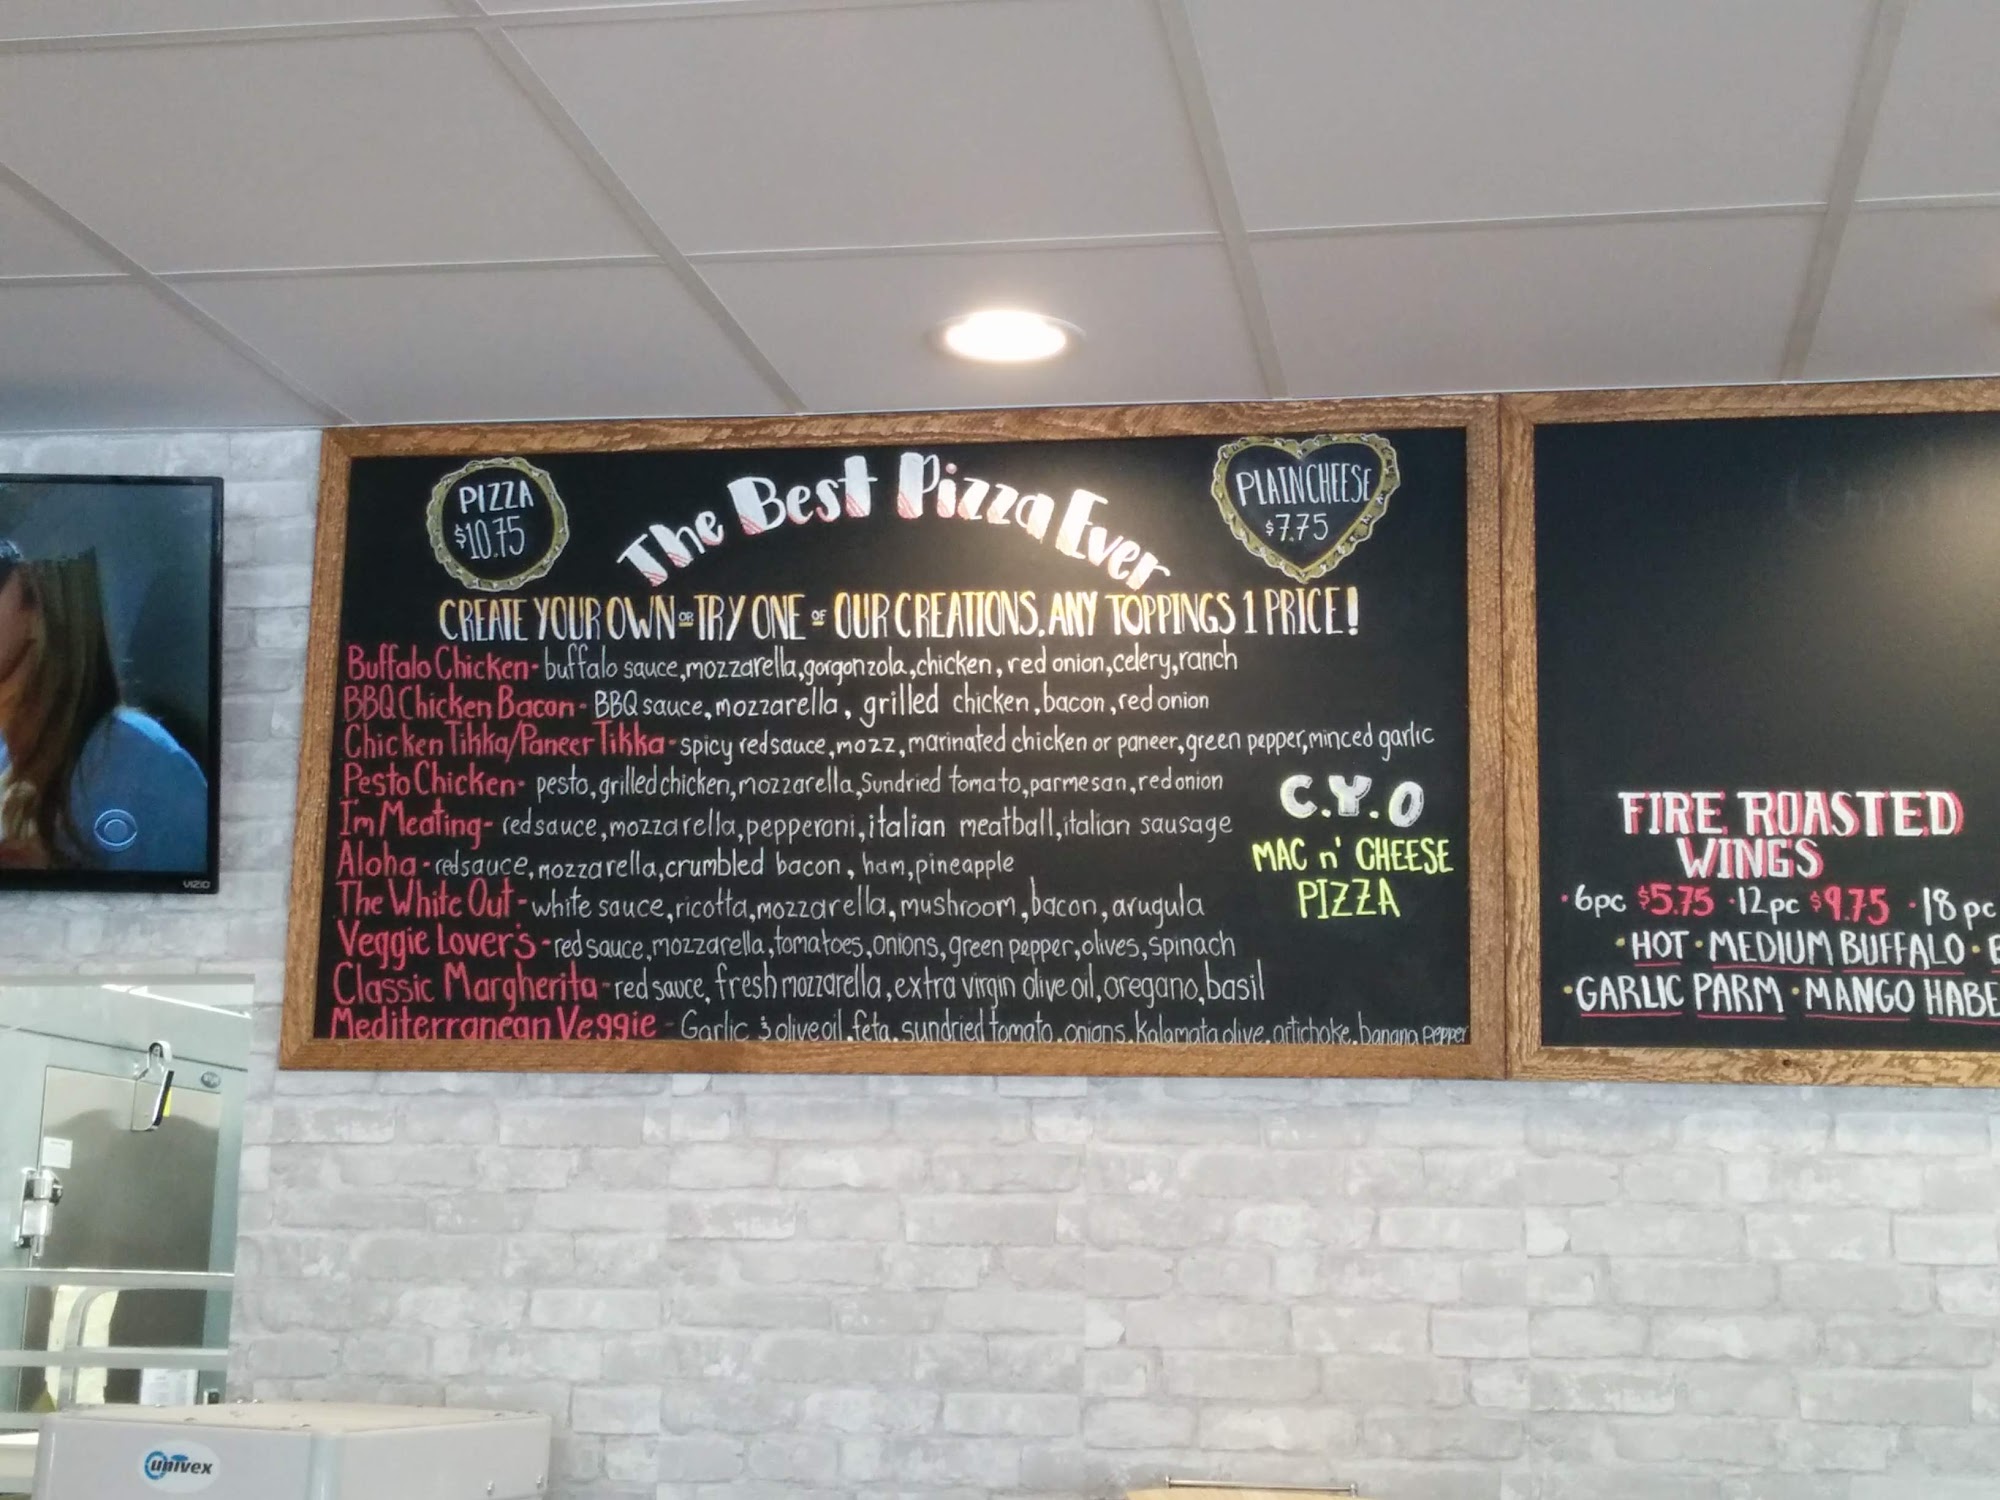 PIZZA
$10.75
The Best Pizza Ever
PLAIN CHEESE
$7.75
CREATE YOUR OWN OR TRY ONE OF OUR CREATIONS. ANY TOPPINGS 1 PRICE!
Buffalo Chicken - buffalo sauce, mozzarella, gorgonzola, chicken, red onion, celery, ranch
BBQ Chicken Bacon - BBQ sauce, mozzarella, grilled chicken, bacon, red onion
Chicken Tikka/Paneer Tikka - spicy red sauce, mozz, marinated chicken or paneer, green pepper, minced garlic
Pesto Chicken - pesto, grilled chicken, mozzarella, Sundried tomato, parmesan, red onion
I'm Meating - red sauce, mozzarella, pepperoni, italian meatball, italian sausage
Aloha - red sauce, mozzarella, crumbled bacon, ham, pineapple
The White Out - white sauce, ricotta, mozzarella, mushroom, bacon, arugula
Veggie Lover's - red sauce, mozzarella, tomatoes, onions, green pepper, olives, spinach
Classic Margherita - red sauce, fresh mozzarella, extra virgin olive oil, oregano, basil
Mediterranean Veggie - Garlic & olive oil, feta, sundried tomato, onions, kalamata olive, artichoke, banana pepper
C.Y.O
MAC n' CHEESE
PIZZA
FIRE ROASTED
WINGS
· 6pc $5.75 · 12pc $9.75 · 18pc
· HOT · MEDIUM BUFFALO ·
· GARLIC PARM · MANGO HABE
VIZIO
univex